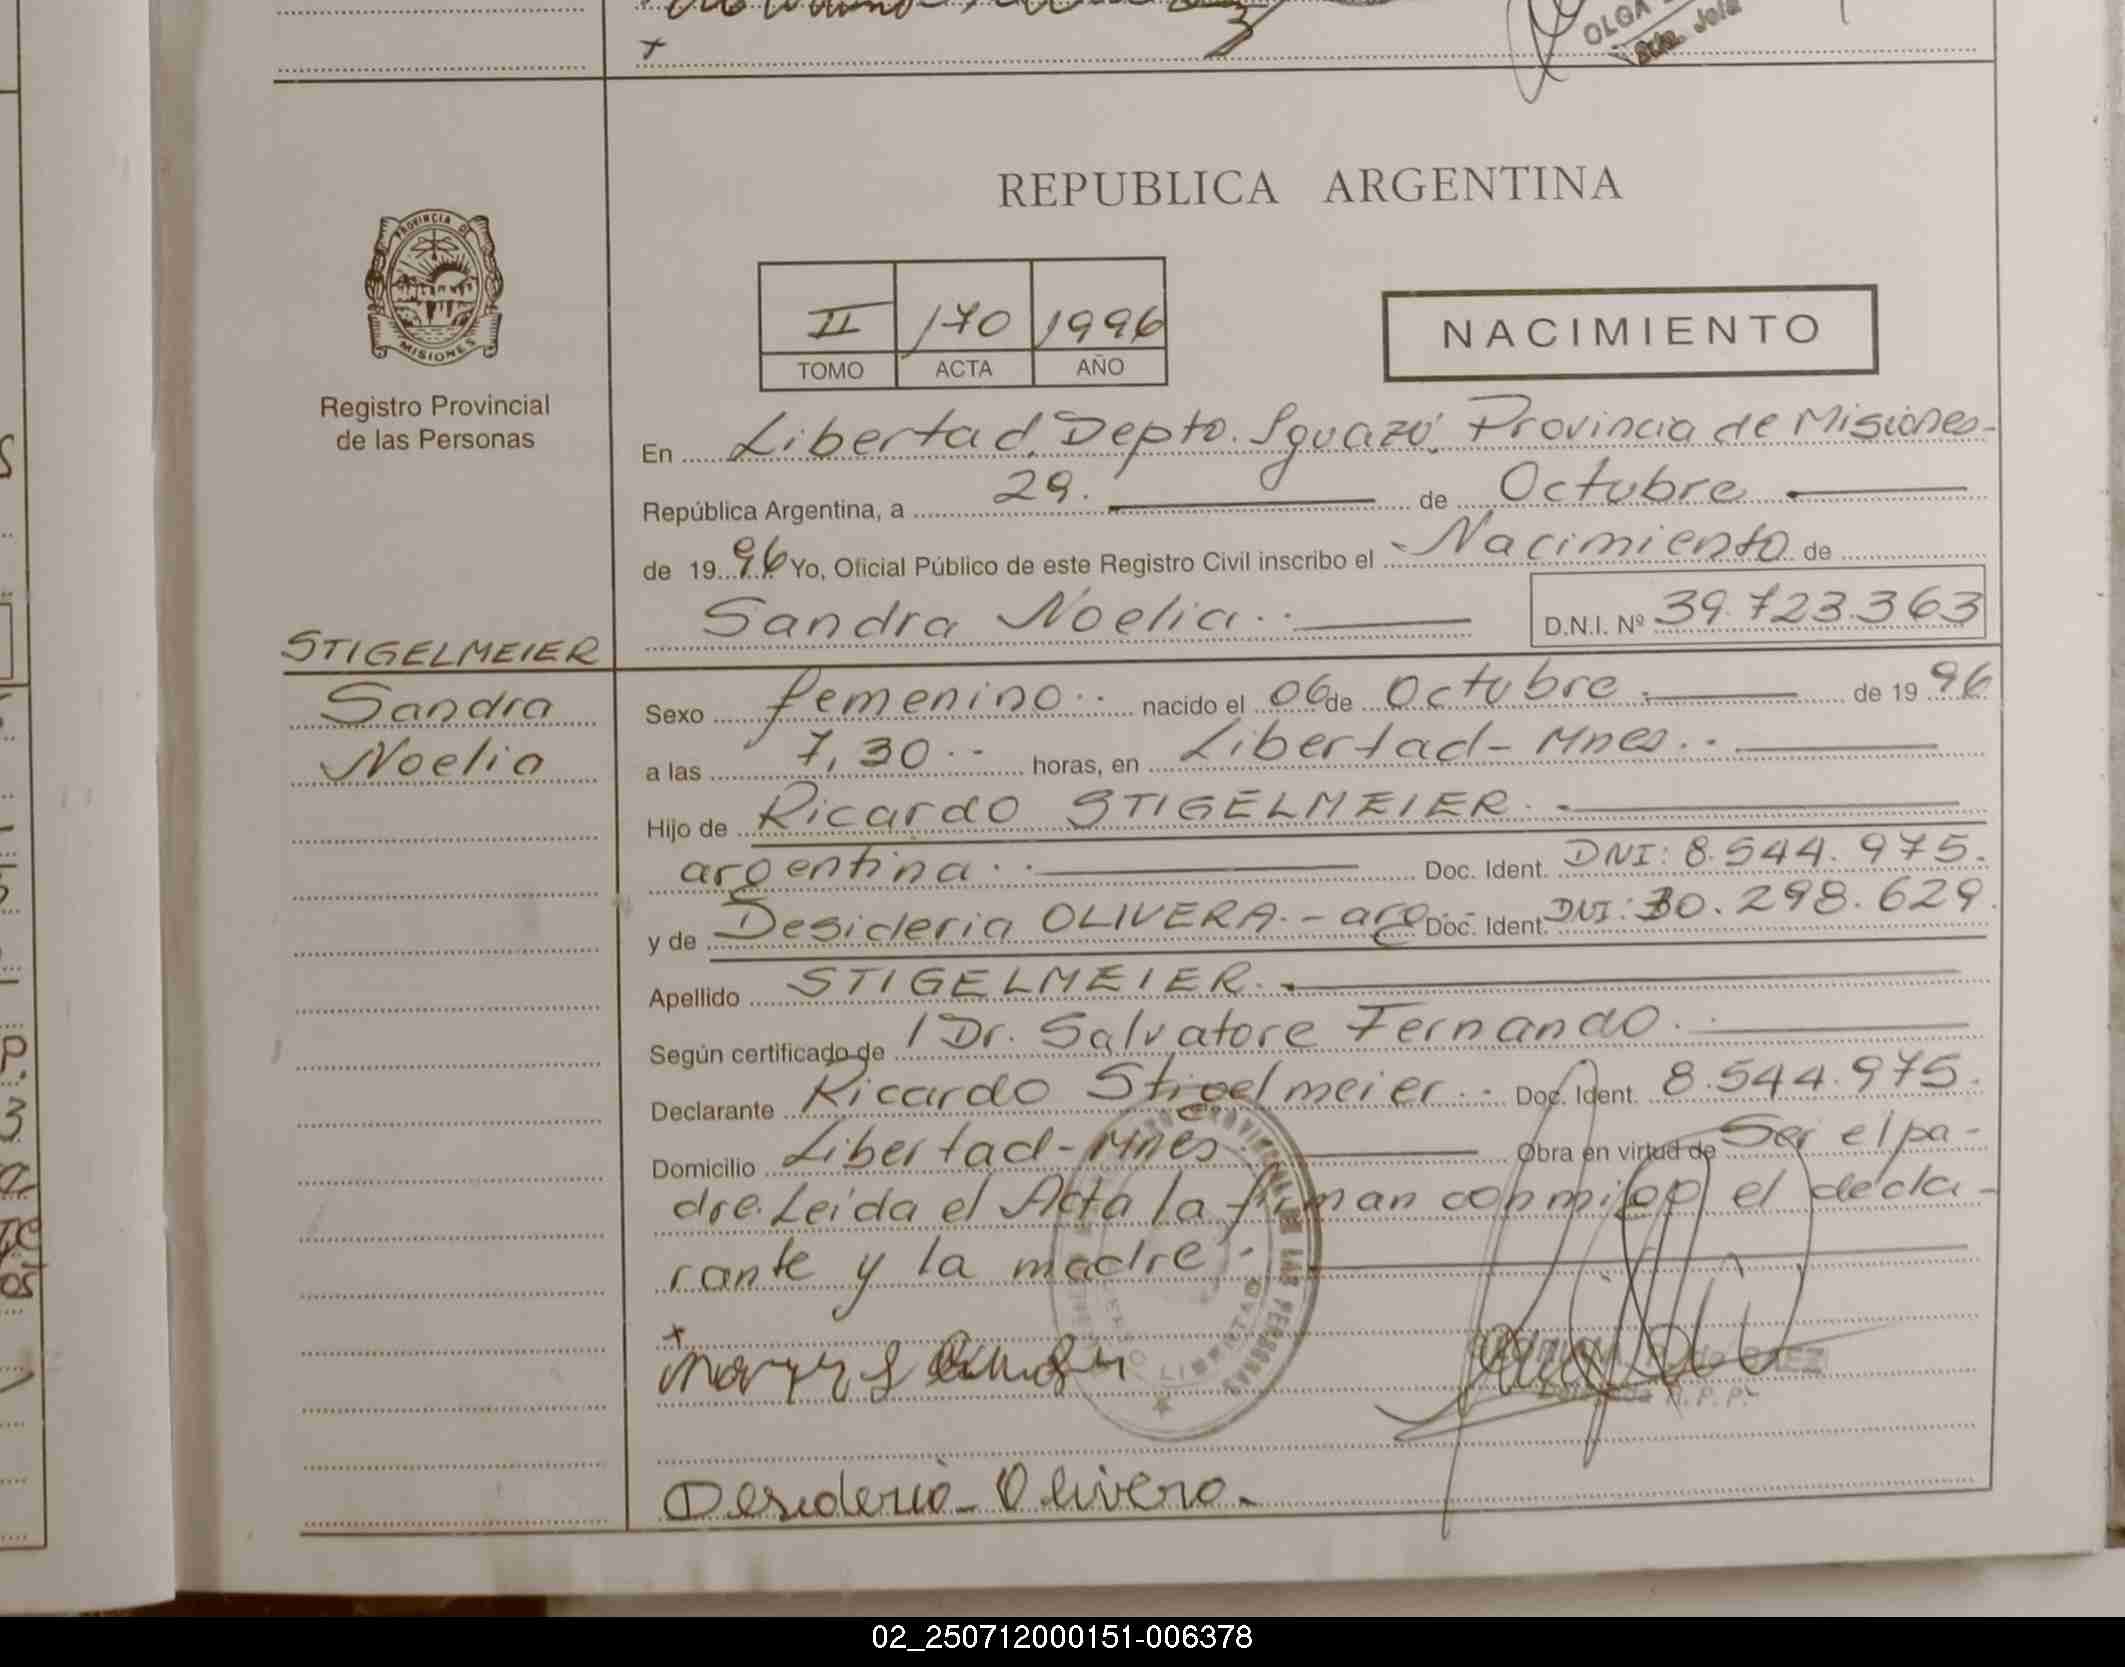 OLGA
REPUBLICA ARGENTINA
PROVINCIA DE
MISIONES
Registro Provincial
de las Personas
II 170 1996
TOMO ACTA AÑO
NACIMIENTO
En Libertad, Depto. Iguazú. Provincia de Misiones-
República Argentina, a 29. de Octubre
de 1996 Yo, Oficial Público de este Registro Civil inscribo el Nacimiento de
Sandra Noelia.. D.N.I. Nº 39.723.363
STIGELMEIER
Sandra
Noelia
Sexo femenino.. nacido el 06 de Octubre. de 1996
a las 7,30.. horas, en Libertad-Mnes..
Hijo de Ricardo STIGELMEIER.
argentina.. Doc. Ident. DNI: 8.544.975.
y de Desideria OLIVERA.- arg.- Doc. Ident. DNI: 30.298.629
Apellido STIGELMEIER.
Según certificado de Dr. Salvatore Fernando.
Declarante Ricardo Stigelmeier.. Doc. Ident. 8.544.975.
Domicilio Libertad-Mnes Obra en virtud de Ser el pa-
dre. Leída el Acta la firman conmigo el decla-
rante y la madre.-
LIBERTAD
R.P.P.
Desideria Olivera.
02_250712000151-006378